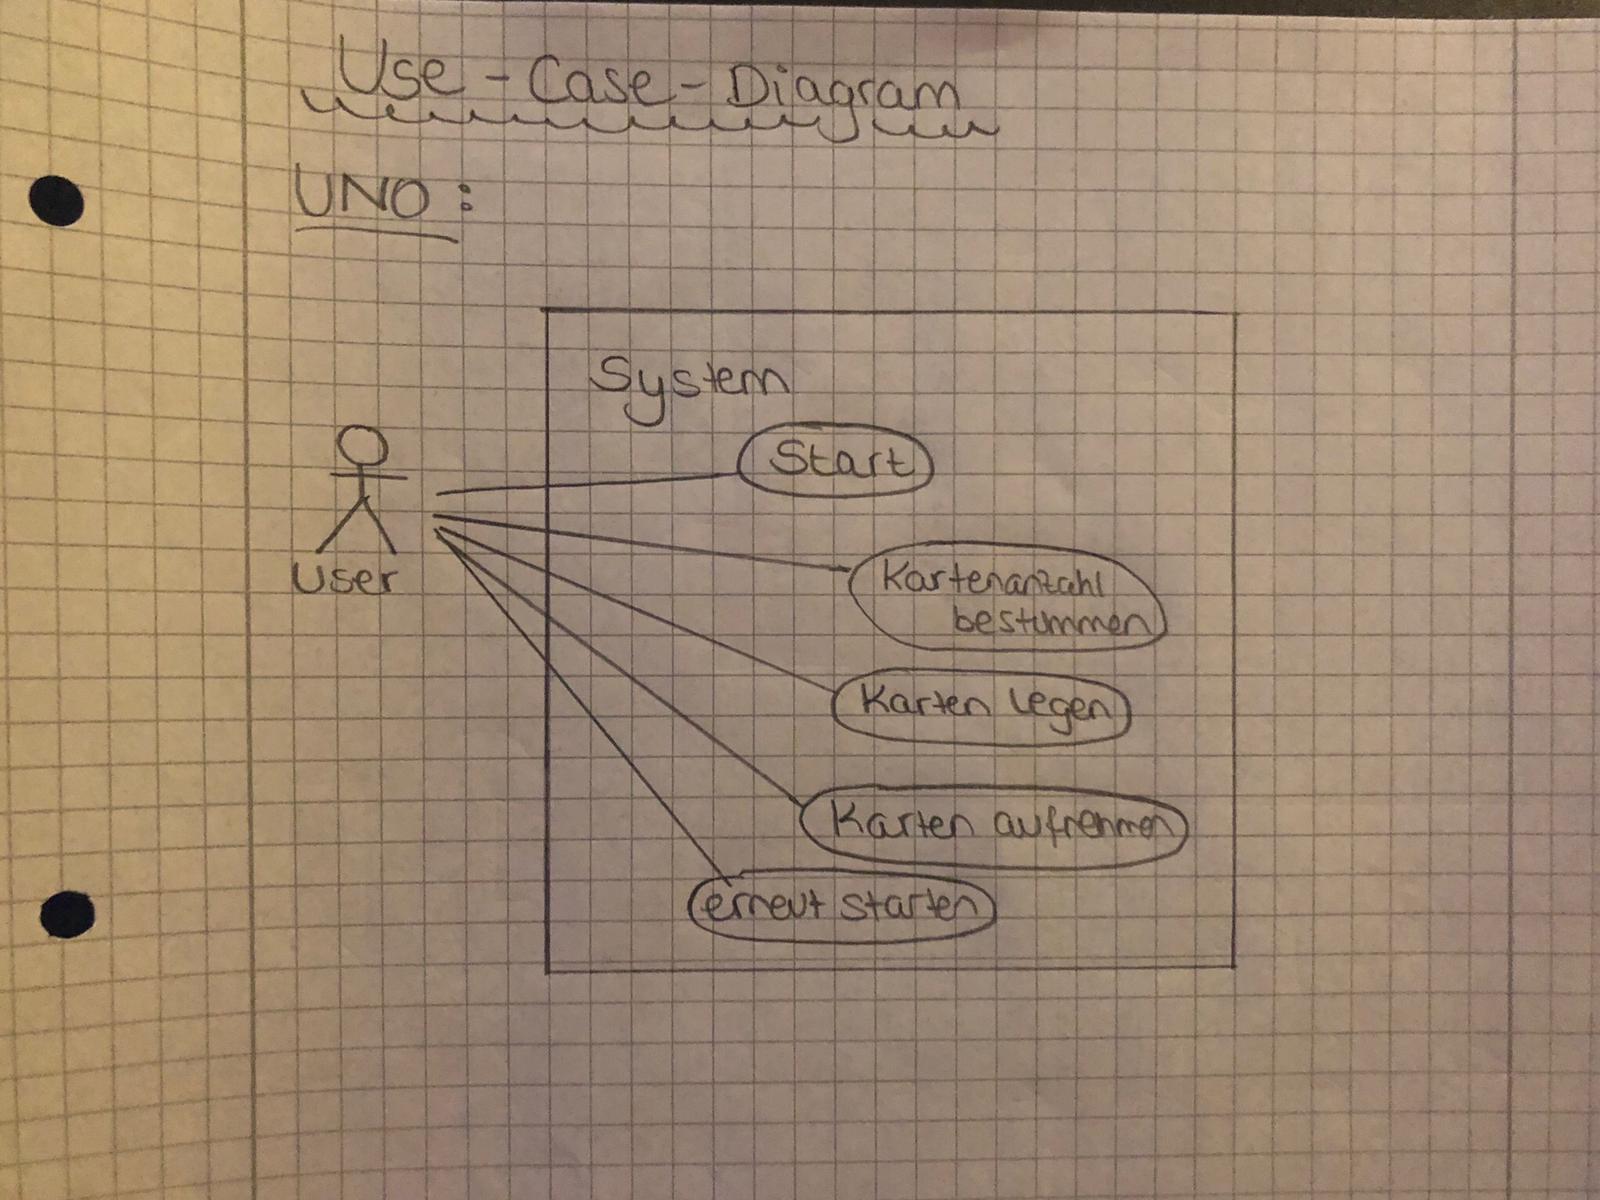 Use-Case-Diagram
UNO:
System
Start
User
Kartenanzahl
bestimmen
Karten legen
Karten aufnehmen
erneut starten